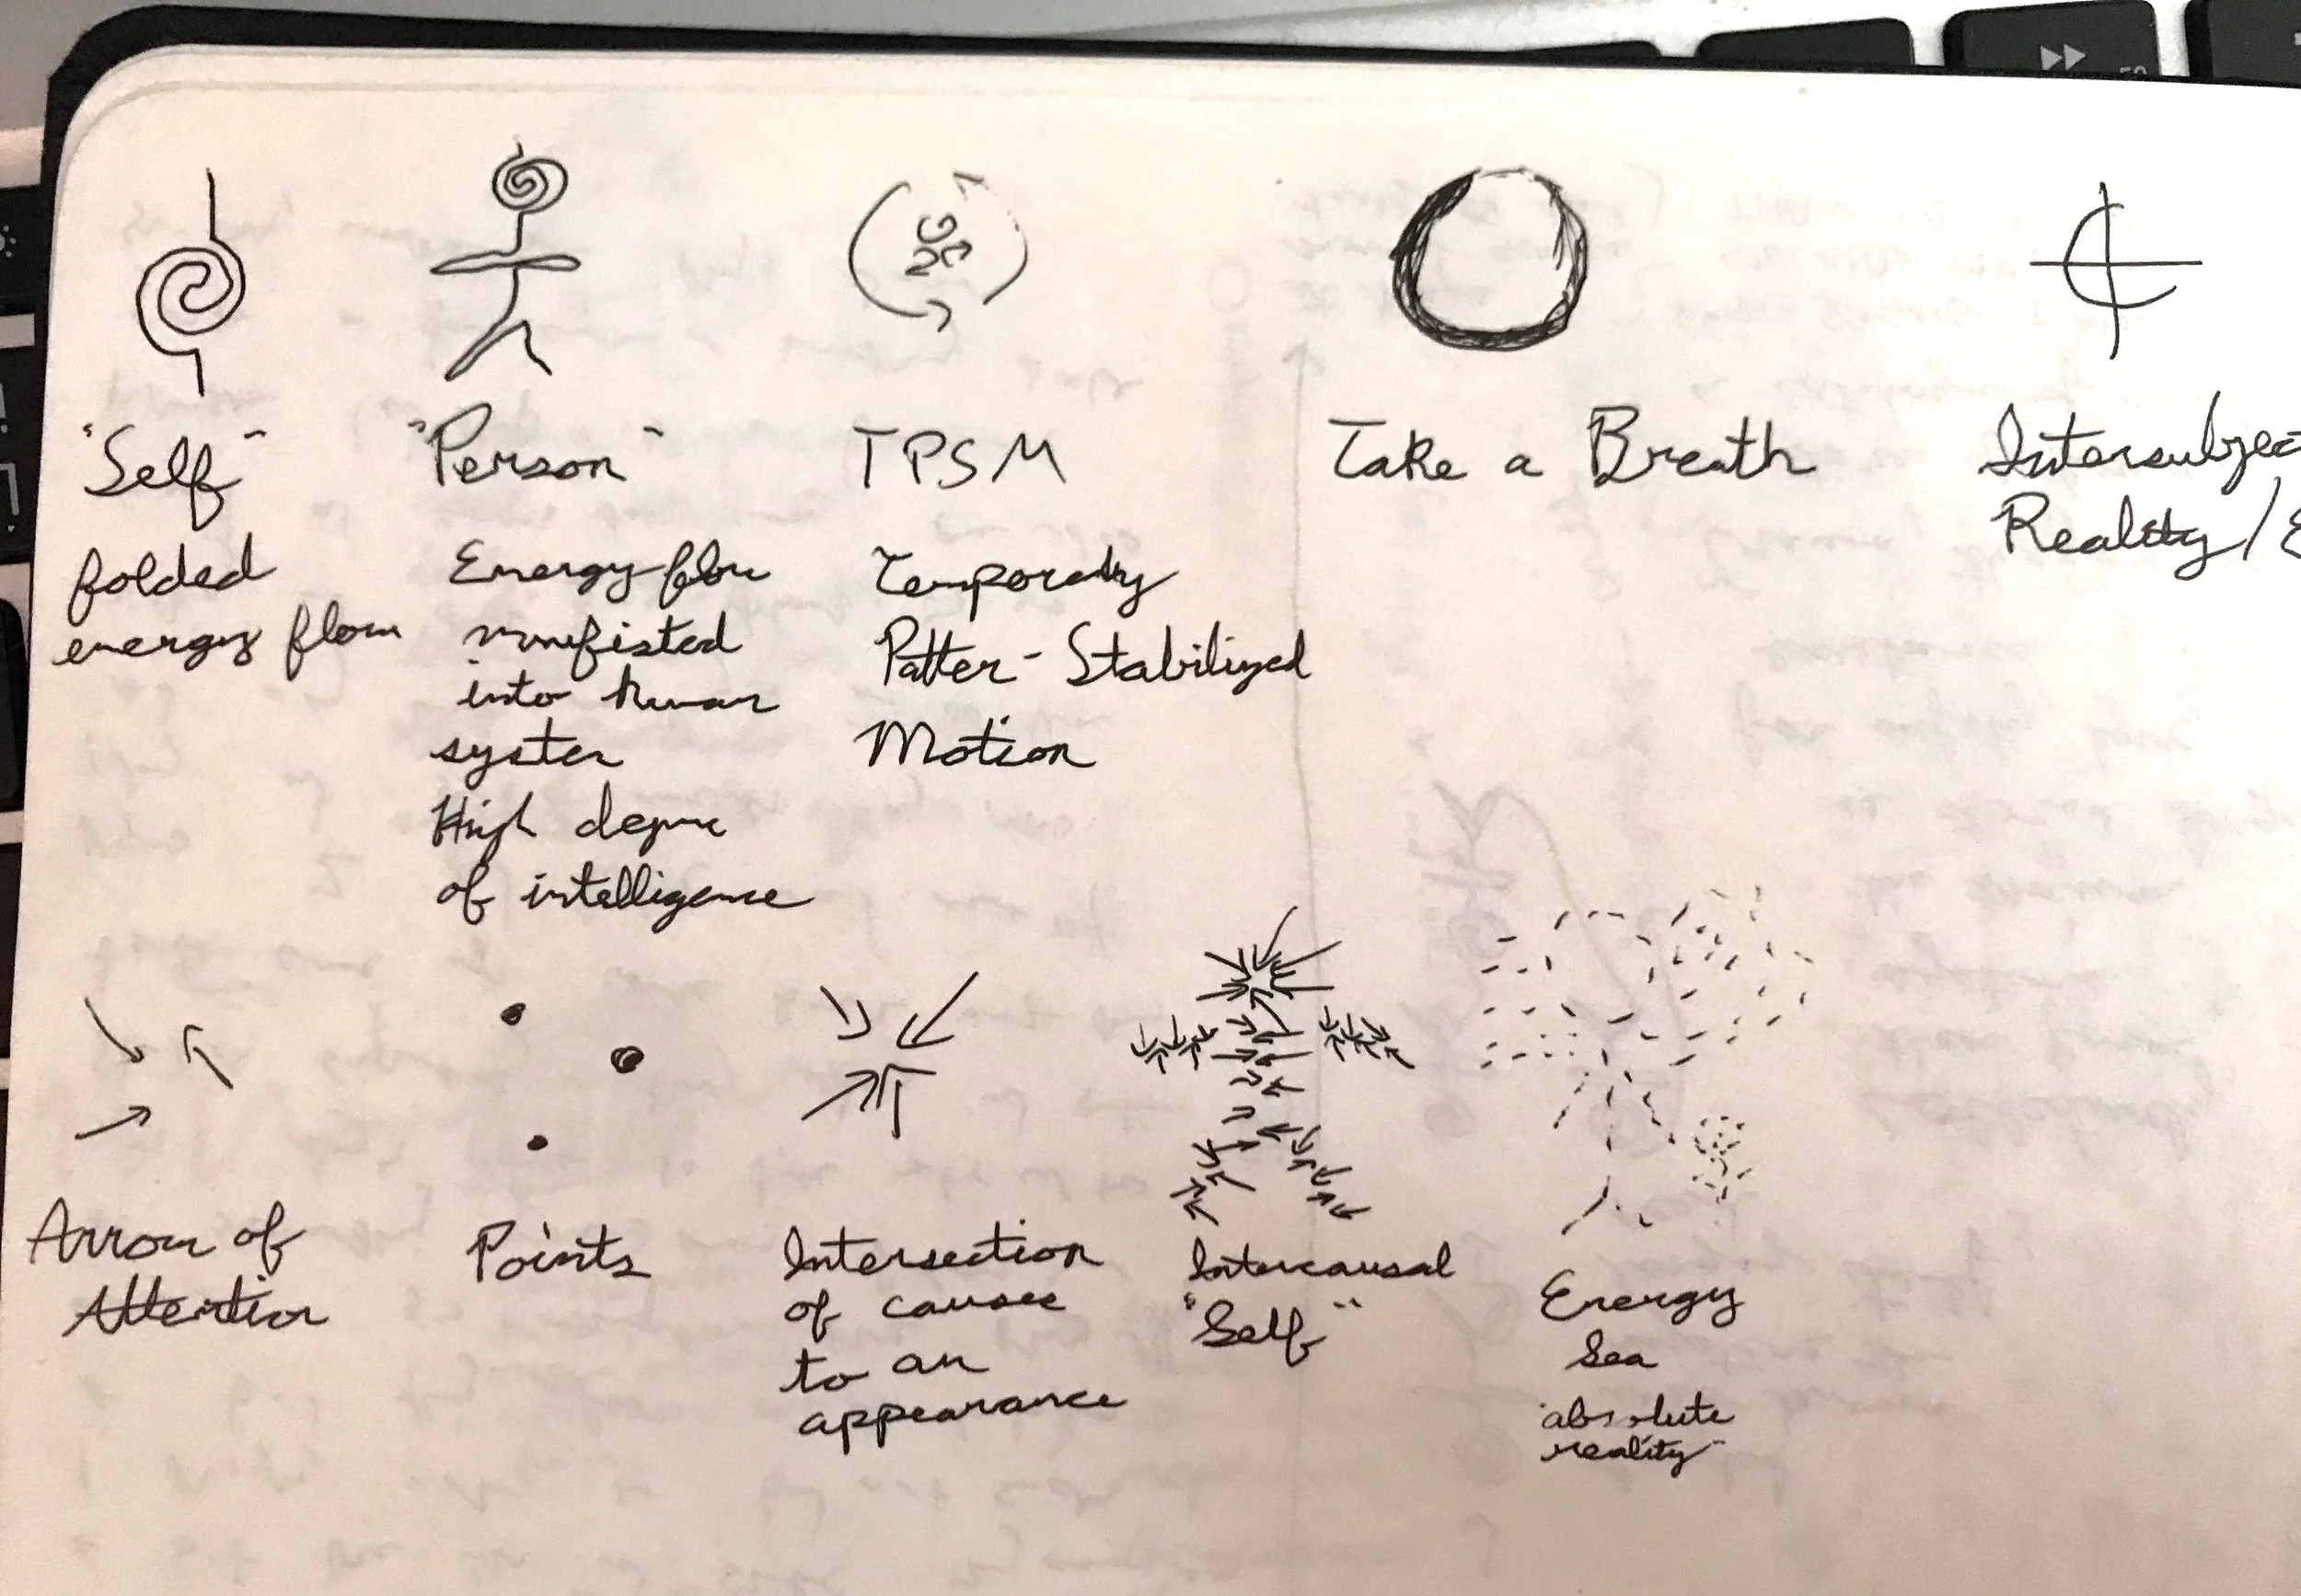 "Self"
folded
energy flow
"Person"
Energy flow
manifisted
into human
system
High degree
of intelligence
TPSM
Temporarily
Patter-Stabilized
Motion
Take a Breath
Intersubjec
Reality/
Arrow of
Attention
Points
Intersection
of causes
to an
appearance
Intercausal
"Self"
Energy
Sea
"absolute
reality"